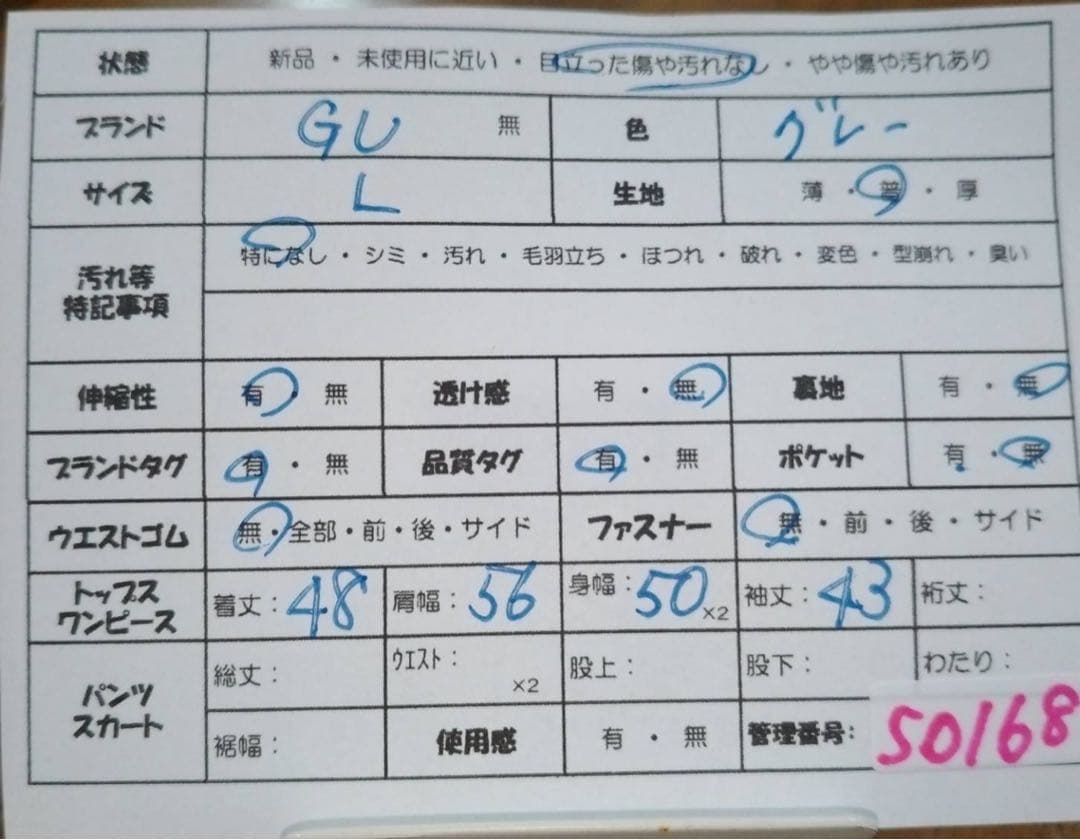 状態 新品 ・ 未使用に近い ・ 目立った傷や汚れなし ・ やや傷や汚れあり
ブランド GU 無 色 グレー
サイズ L 生地 薄 ・ 普 ・ 厚
汚れ等
特記事項
特になし ・ シミ ・ 汚れ ・ 毛羽立ち ・ ほつれ ・ 破れ ・ 変色 ・ 型崩れ ・ 臭い
伸縮性 有 ・ 無 透け感 有 ・ 無 裏地 有 ・ 無
ブランドタグ 有 ・ 無 品質タグ 有 ・ 無 ポケット 有 ・ 無
ウエストゴム 無・全部・前・後・サイド ファスナー 無・前・後・サイド
トップス
ワンピース
着丈：48 肩幅：56 身幅：50 ×2 袖丈：43 裄丈：
パンツ
スカート
総丈： ウエスト： ×2 股上： 股下： わたり：
裾幅： 使用感 有 ・ 無 管理番号： 50168